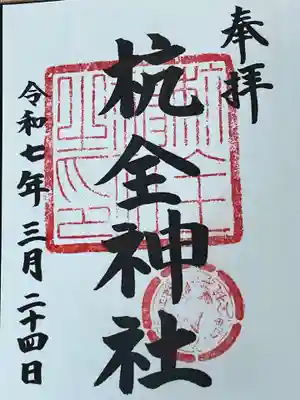 奉拝
杭全神社
令和七年 三月 二十四日